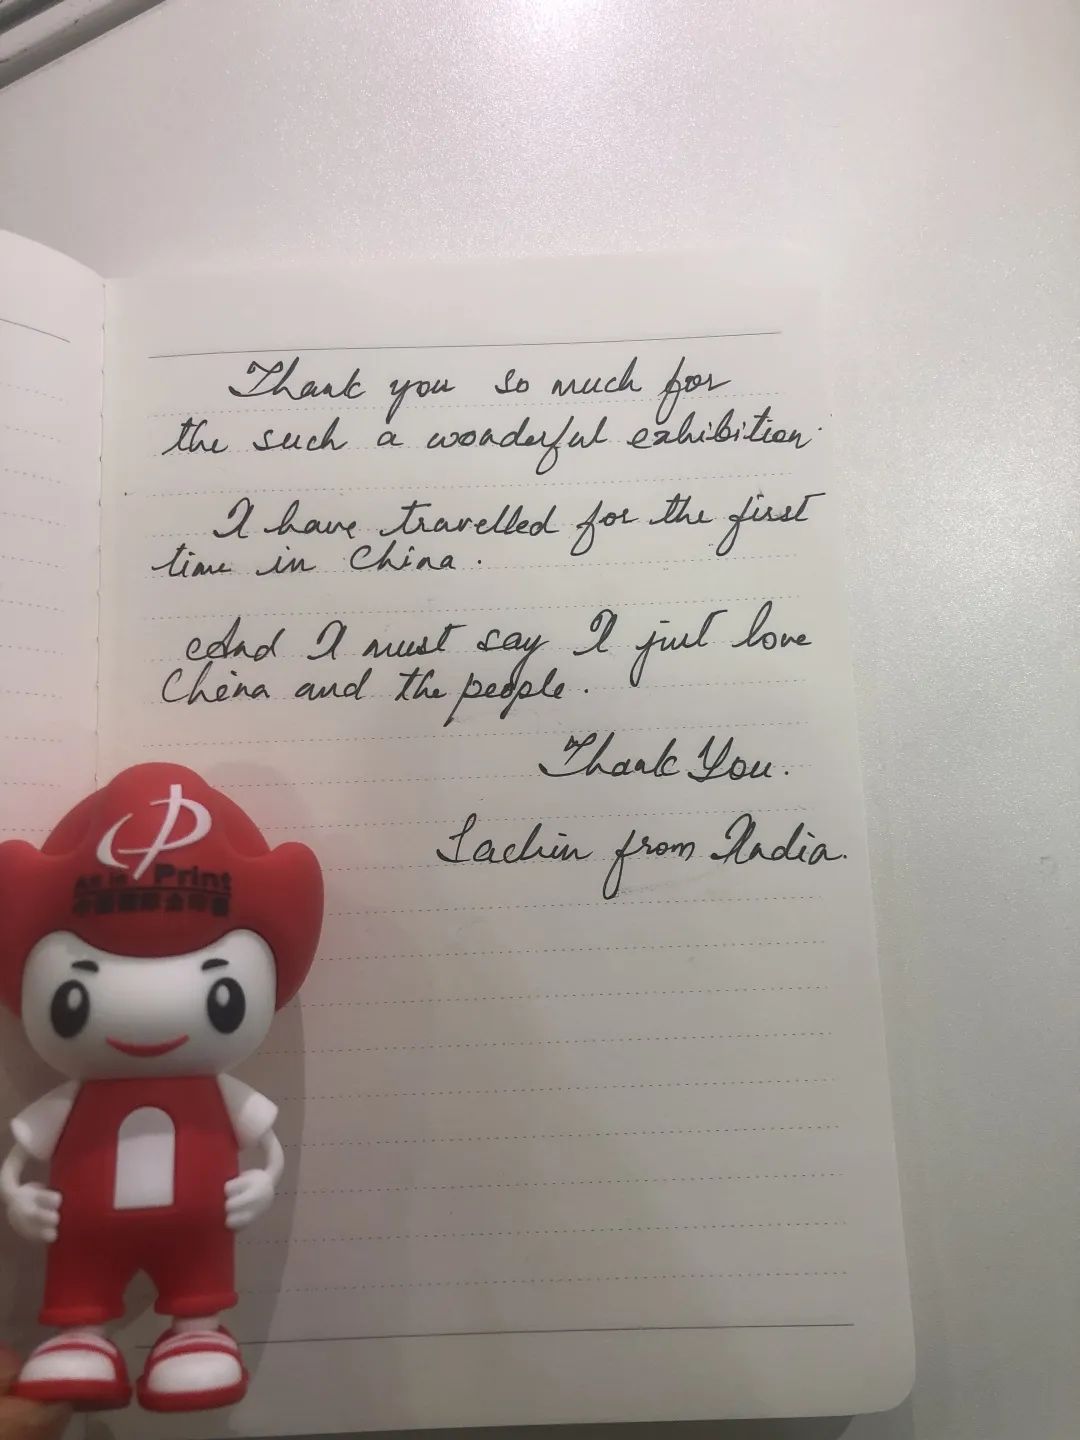 Thank you so much for
the such a wonderful exhibition.
I have travelled for the first
time in China.
And I must say I just love
China and the people.
Thank You.
Sachin from India.
All in Print
中国国际全印展